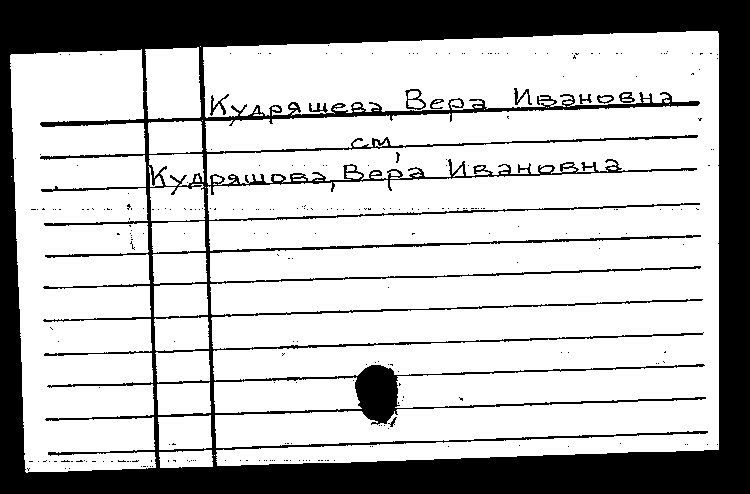 Кудряшева, Вера Ивановна
см.
Кудряшова, Вера Ивановна